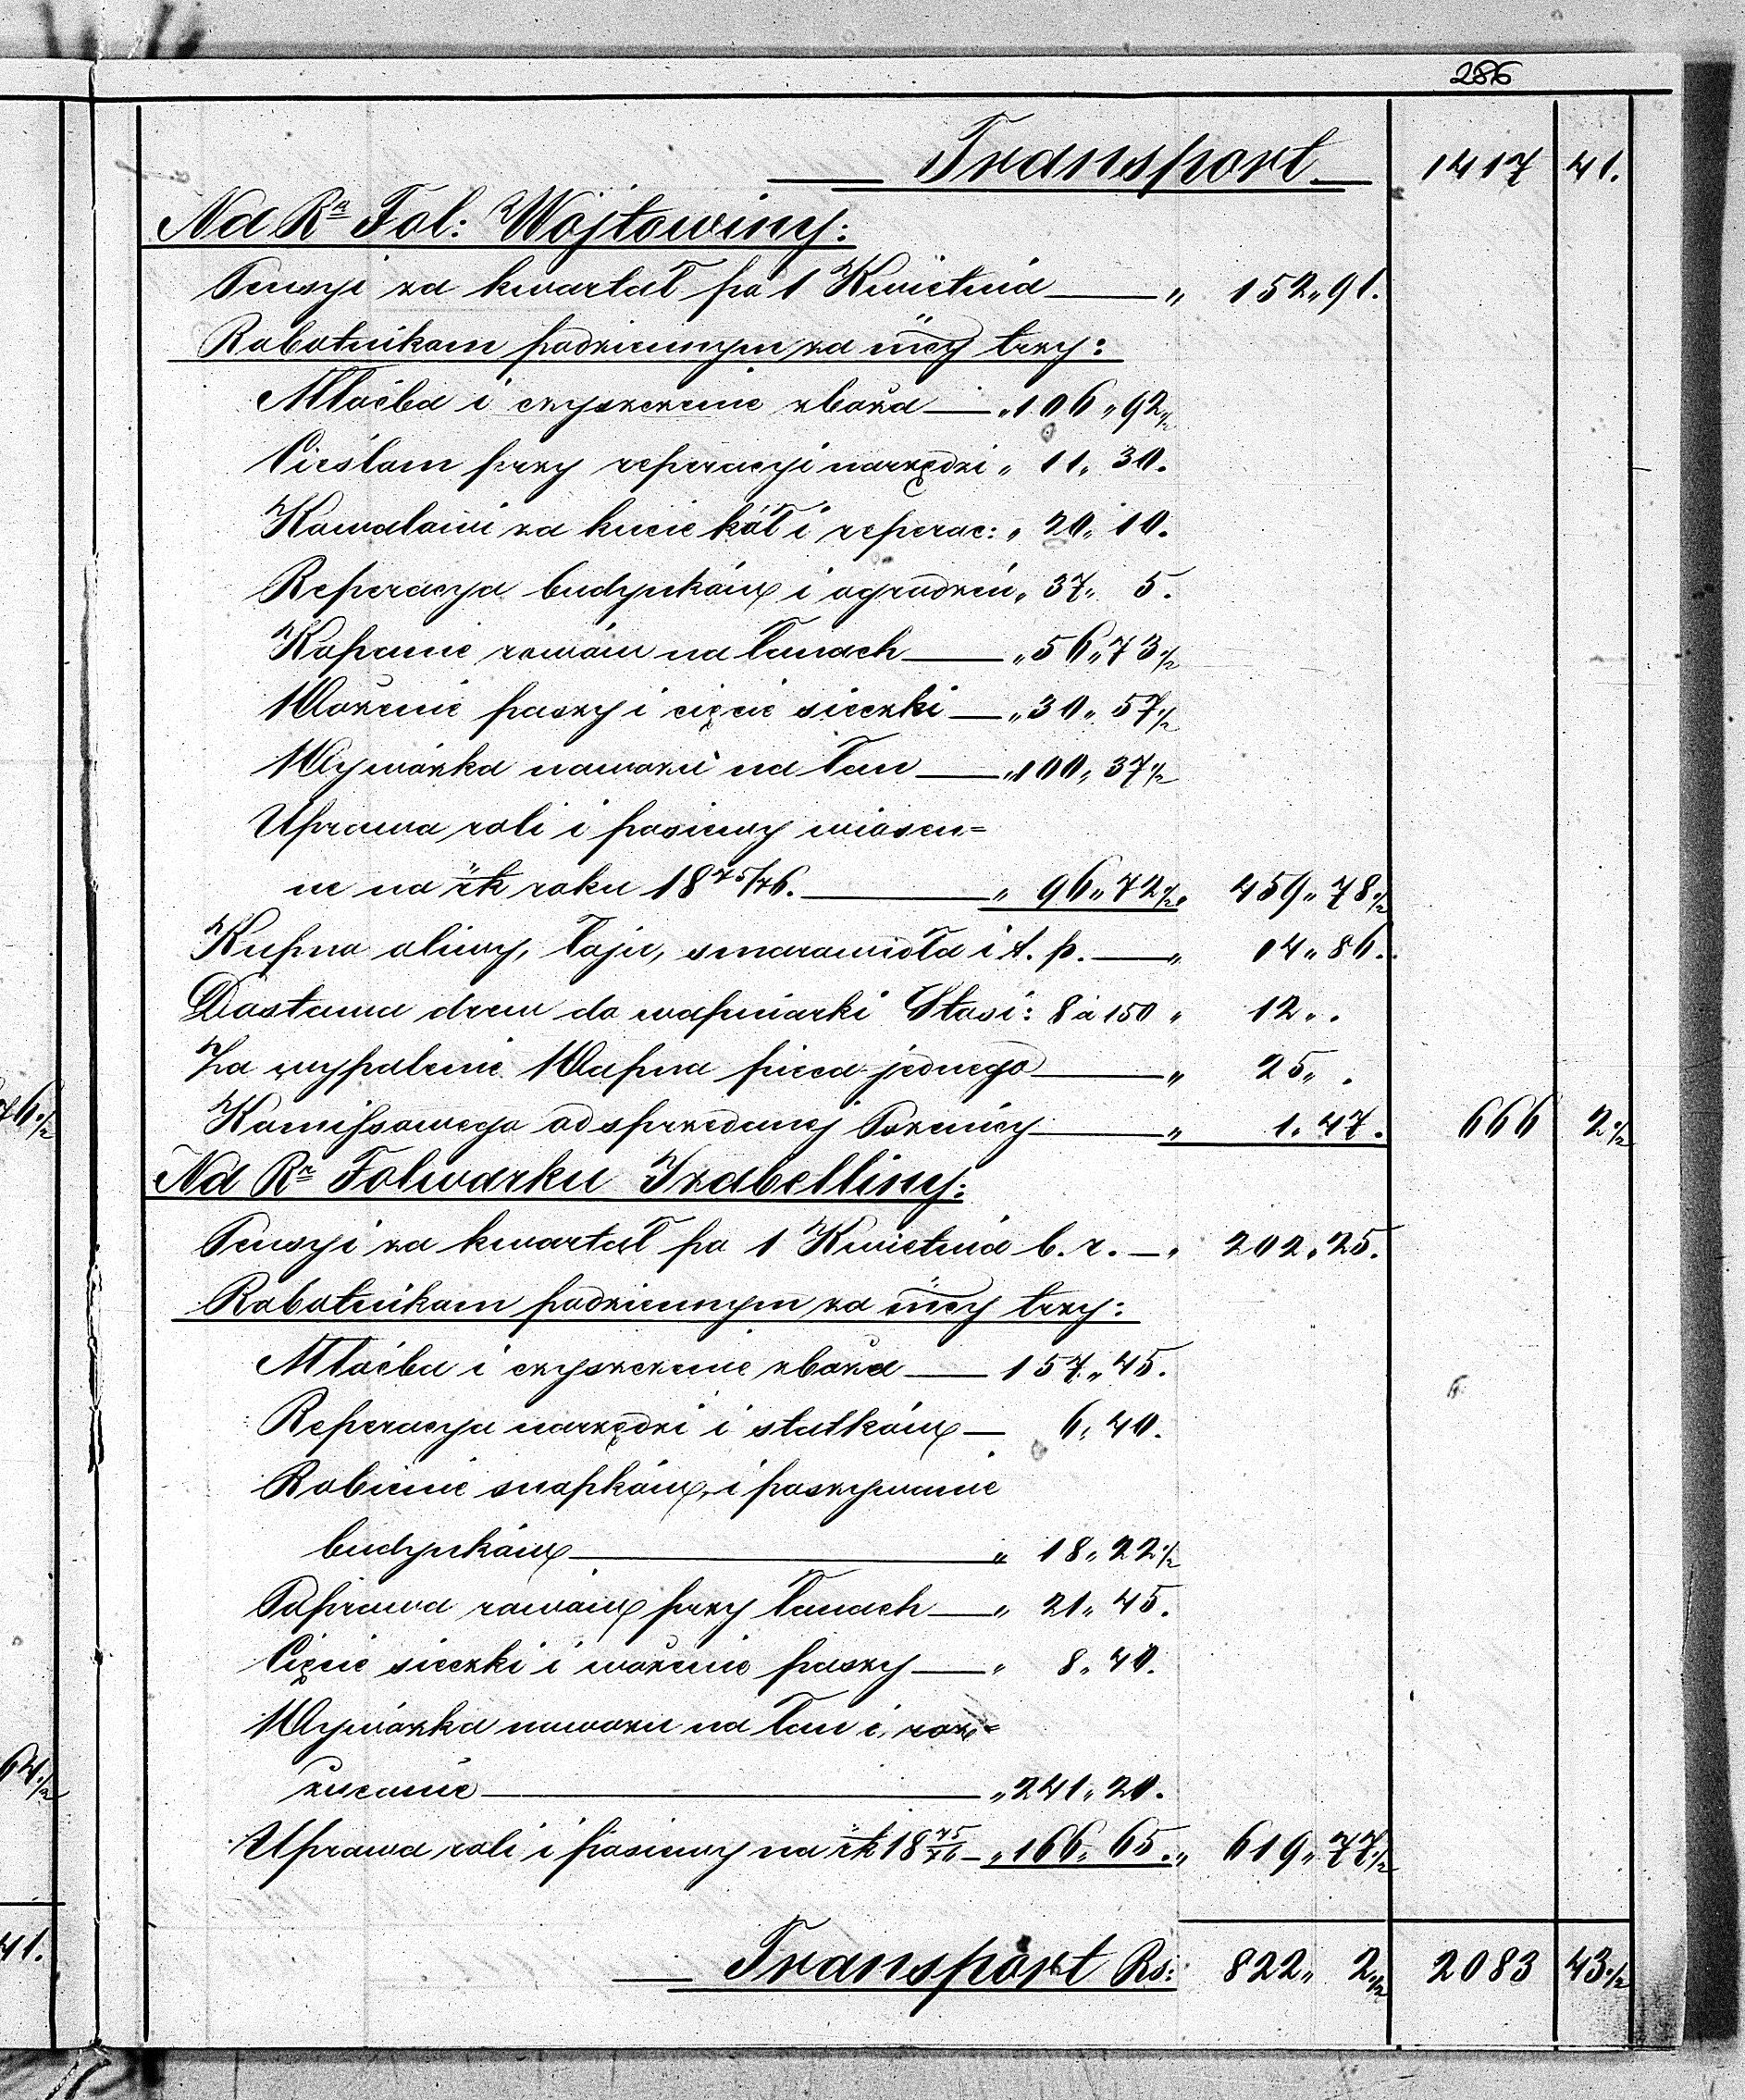 286
Transport 1417 41.
Na Rn Fol: Wojtowiny:
Pensyi za kwartał po 1 Kwietnia „ 152„91.
Robotnikom podziennym za mcy trzy:
Młoćba i czyszczenie zboża „106„92½
Cieślom przy reperacyi narzędzi „ 11„ 30.
Kowalowi za kucie kół i reperac: „ 20„ 10.
Reperacya budynków i ogrodzeń „ 37„ 5.
Kopanie rowów na Łanach „56„73½
Ważenie paszy i cięcie sieczki „30„57½
Wywózka nawozu na Łan „100„37½
Uprawa roli i posiewy wiosen=
ne na rk roku 1875/76. „ 96„72½„ 459„78½
Kupno oliwy, Łoju, smarowidła i t. p. „ 14„86.
Dostawa drew do wapniarki Stasi: 8 á 150 „ 12„.
Za wypalenie Wapna pieca jednego „ 25„.
Komissowego od sprzedanej Pszenicy „ 1„47. 666 2½
Na Rn Folwarku Izabelliny:
Pensyi za kwartał po 1 Kwietnia b. r. „ 202„25.
Robotnikom podziennym za mcy trzy:
Młoćba i czyszczenie zboża 157„45.
Reperacya narzędzi i statków 6„40.
Robienie snopków, i poszywanie
budynków „ 18„22½
Poprawa rowów przy Łanach „ 21„45.
Cięcie sieczki i ważenie paszy „ 8„40.
Wywózka nawozu na Łan i roz=
rzucanie „241„20.
Uprawa roli i posiewy na rk 18 75/76 „166„65.„ 619„77½
Transport Rs: 822„ 2½ 2083 43½
76½
64½
41.